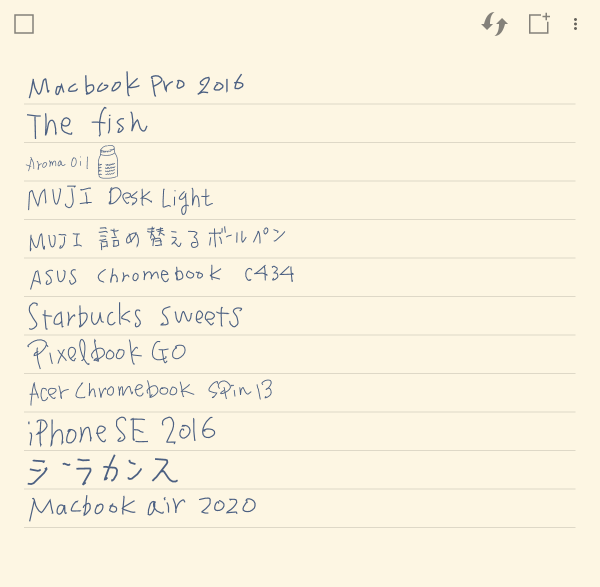 Macbook Pro 2016
The fish
Aroma Oil
MUJI Desk Light
MUJI 詰め替えるボールペン
ASUS Chromebook C434
Starbucks sweets
Pixelbook GO
Acer Chromebook SPin 13
iPhone SE 2016
シーラカンス
Macbook air 2020